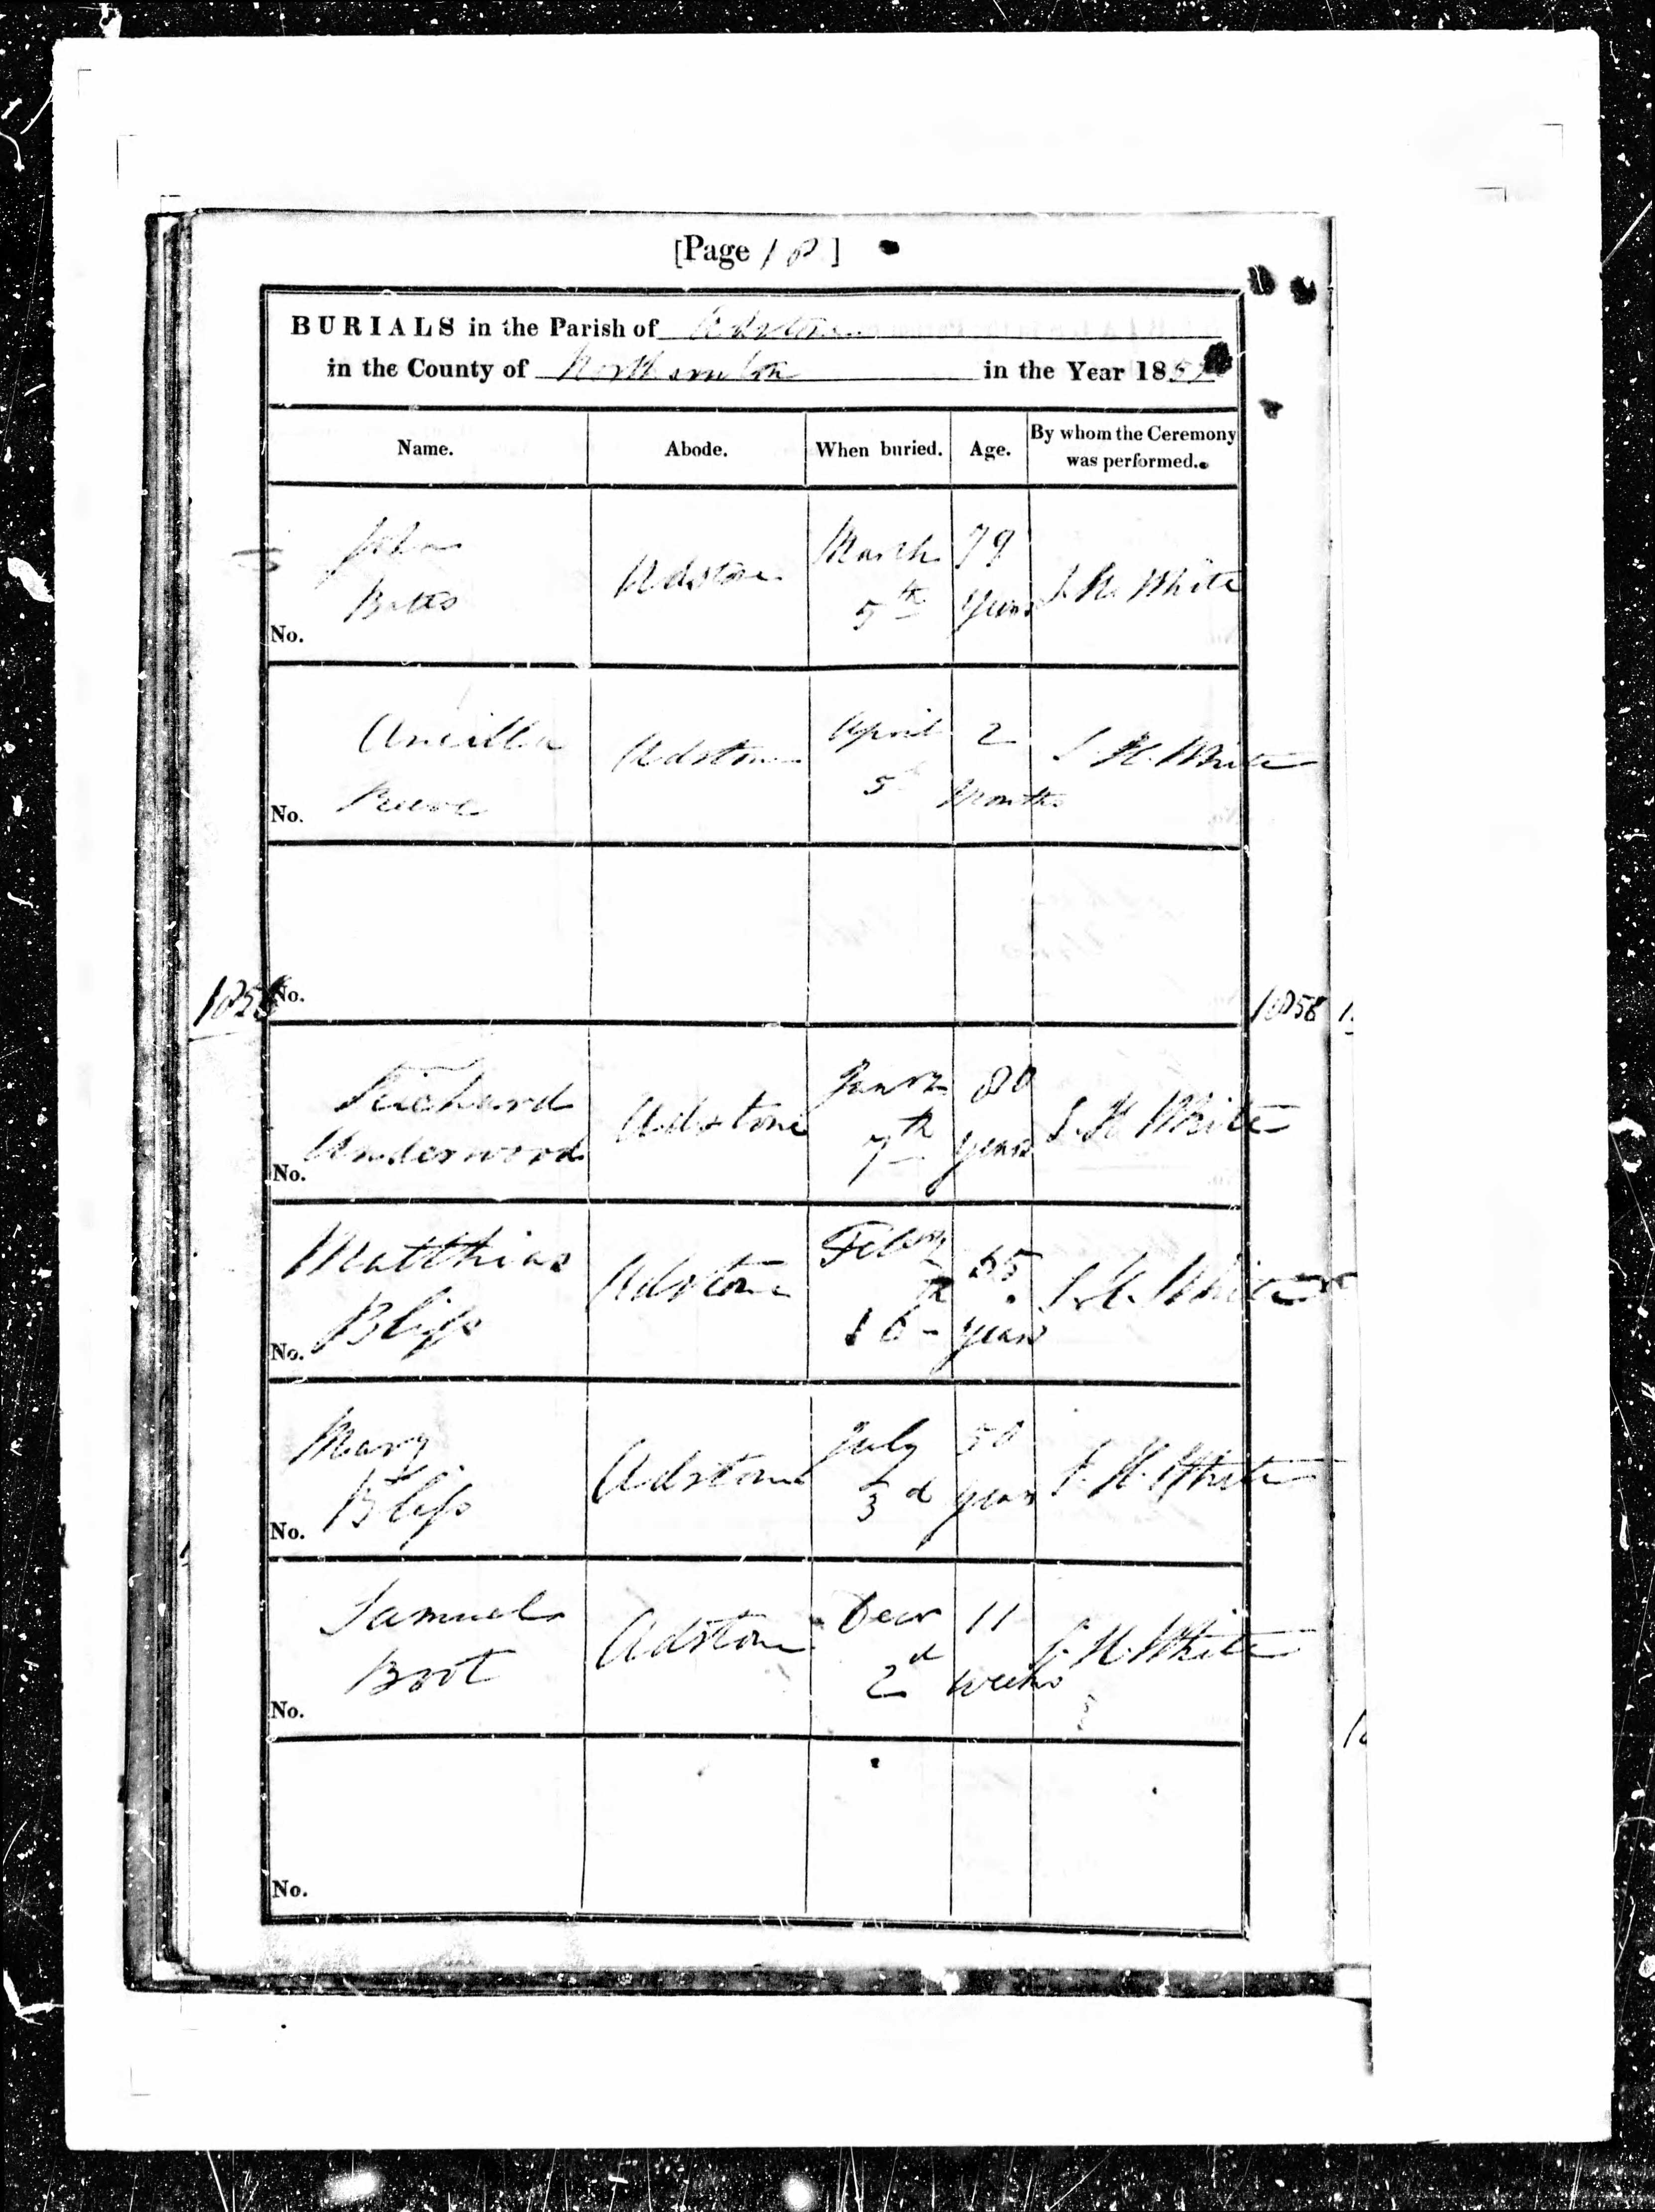 [Page 18]
BURIALS in the Parish of Adstone
in the County of Northampton in the Year 1857
Name. Abode. When buried. Age. By whom the Ceremony
was performed.
John March 79
Bates Adstone 5th Years S. H. White
No.
Ancilla Adstone April 2 S. H. White
Reeve 5th Months
No.
No.
1858 1858
Richard Adstone Janry 80 S. H. White
Underwood 7th years
No.
Matthias Adstone Febry 65 S. H. White
Bliss 16th years
No.
Mary Adstone July 50 S. H. White
Bliss 3d years
No.
Samuel Adstone Decr 11 S. H. White
Boot 2d weeks
No.
No.